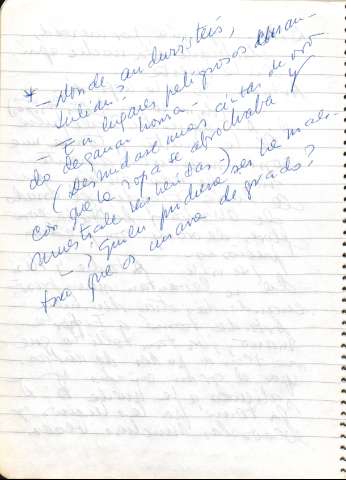 * — Donde anduvisteis,
Julián?
— En lugares peligrosos
do de ganar honra.
(Desnudase unas cintas de oro
con que la ropa se abrochaba y
muestrale las heridas.)
— ? Quien pudiera ser tu maes-
tro que os curara de grado?